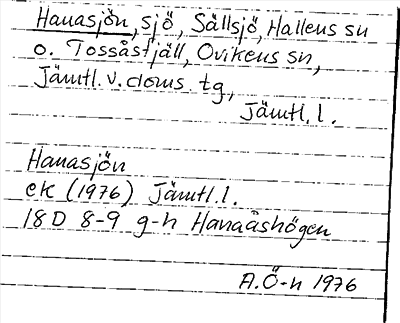 Hanasjön, sjö, Sällsjö, Hallens sn
o. Tossåsfjäll, Ovikens sn,
Jämtl. v. doms. tg,
Jämtl. l.
Hanasjön
ek (1976) Jämtl. l.
18D 8-9 g-h Hanaåshögen
A.Ö-n 1976